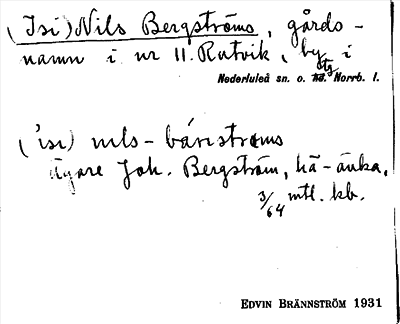 (Isi) Nils Bergströms, gårds-
namn i nr 11. Rutvik, by i
Nederluleå sn. o. hd. Norrb. l.
tg
('isi) nils-
ägare Joh. Bergström, 
3/64 mtl. kb.
EDVIN BRÄNNSTRÖM 1931